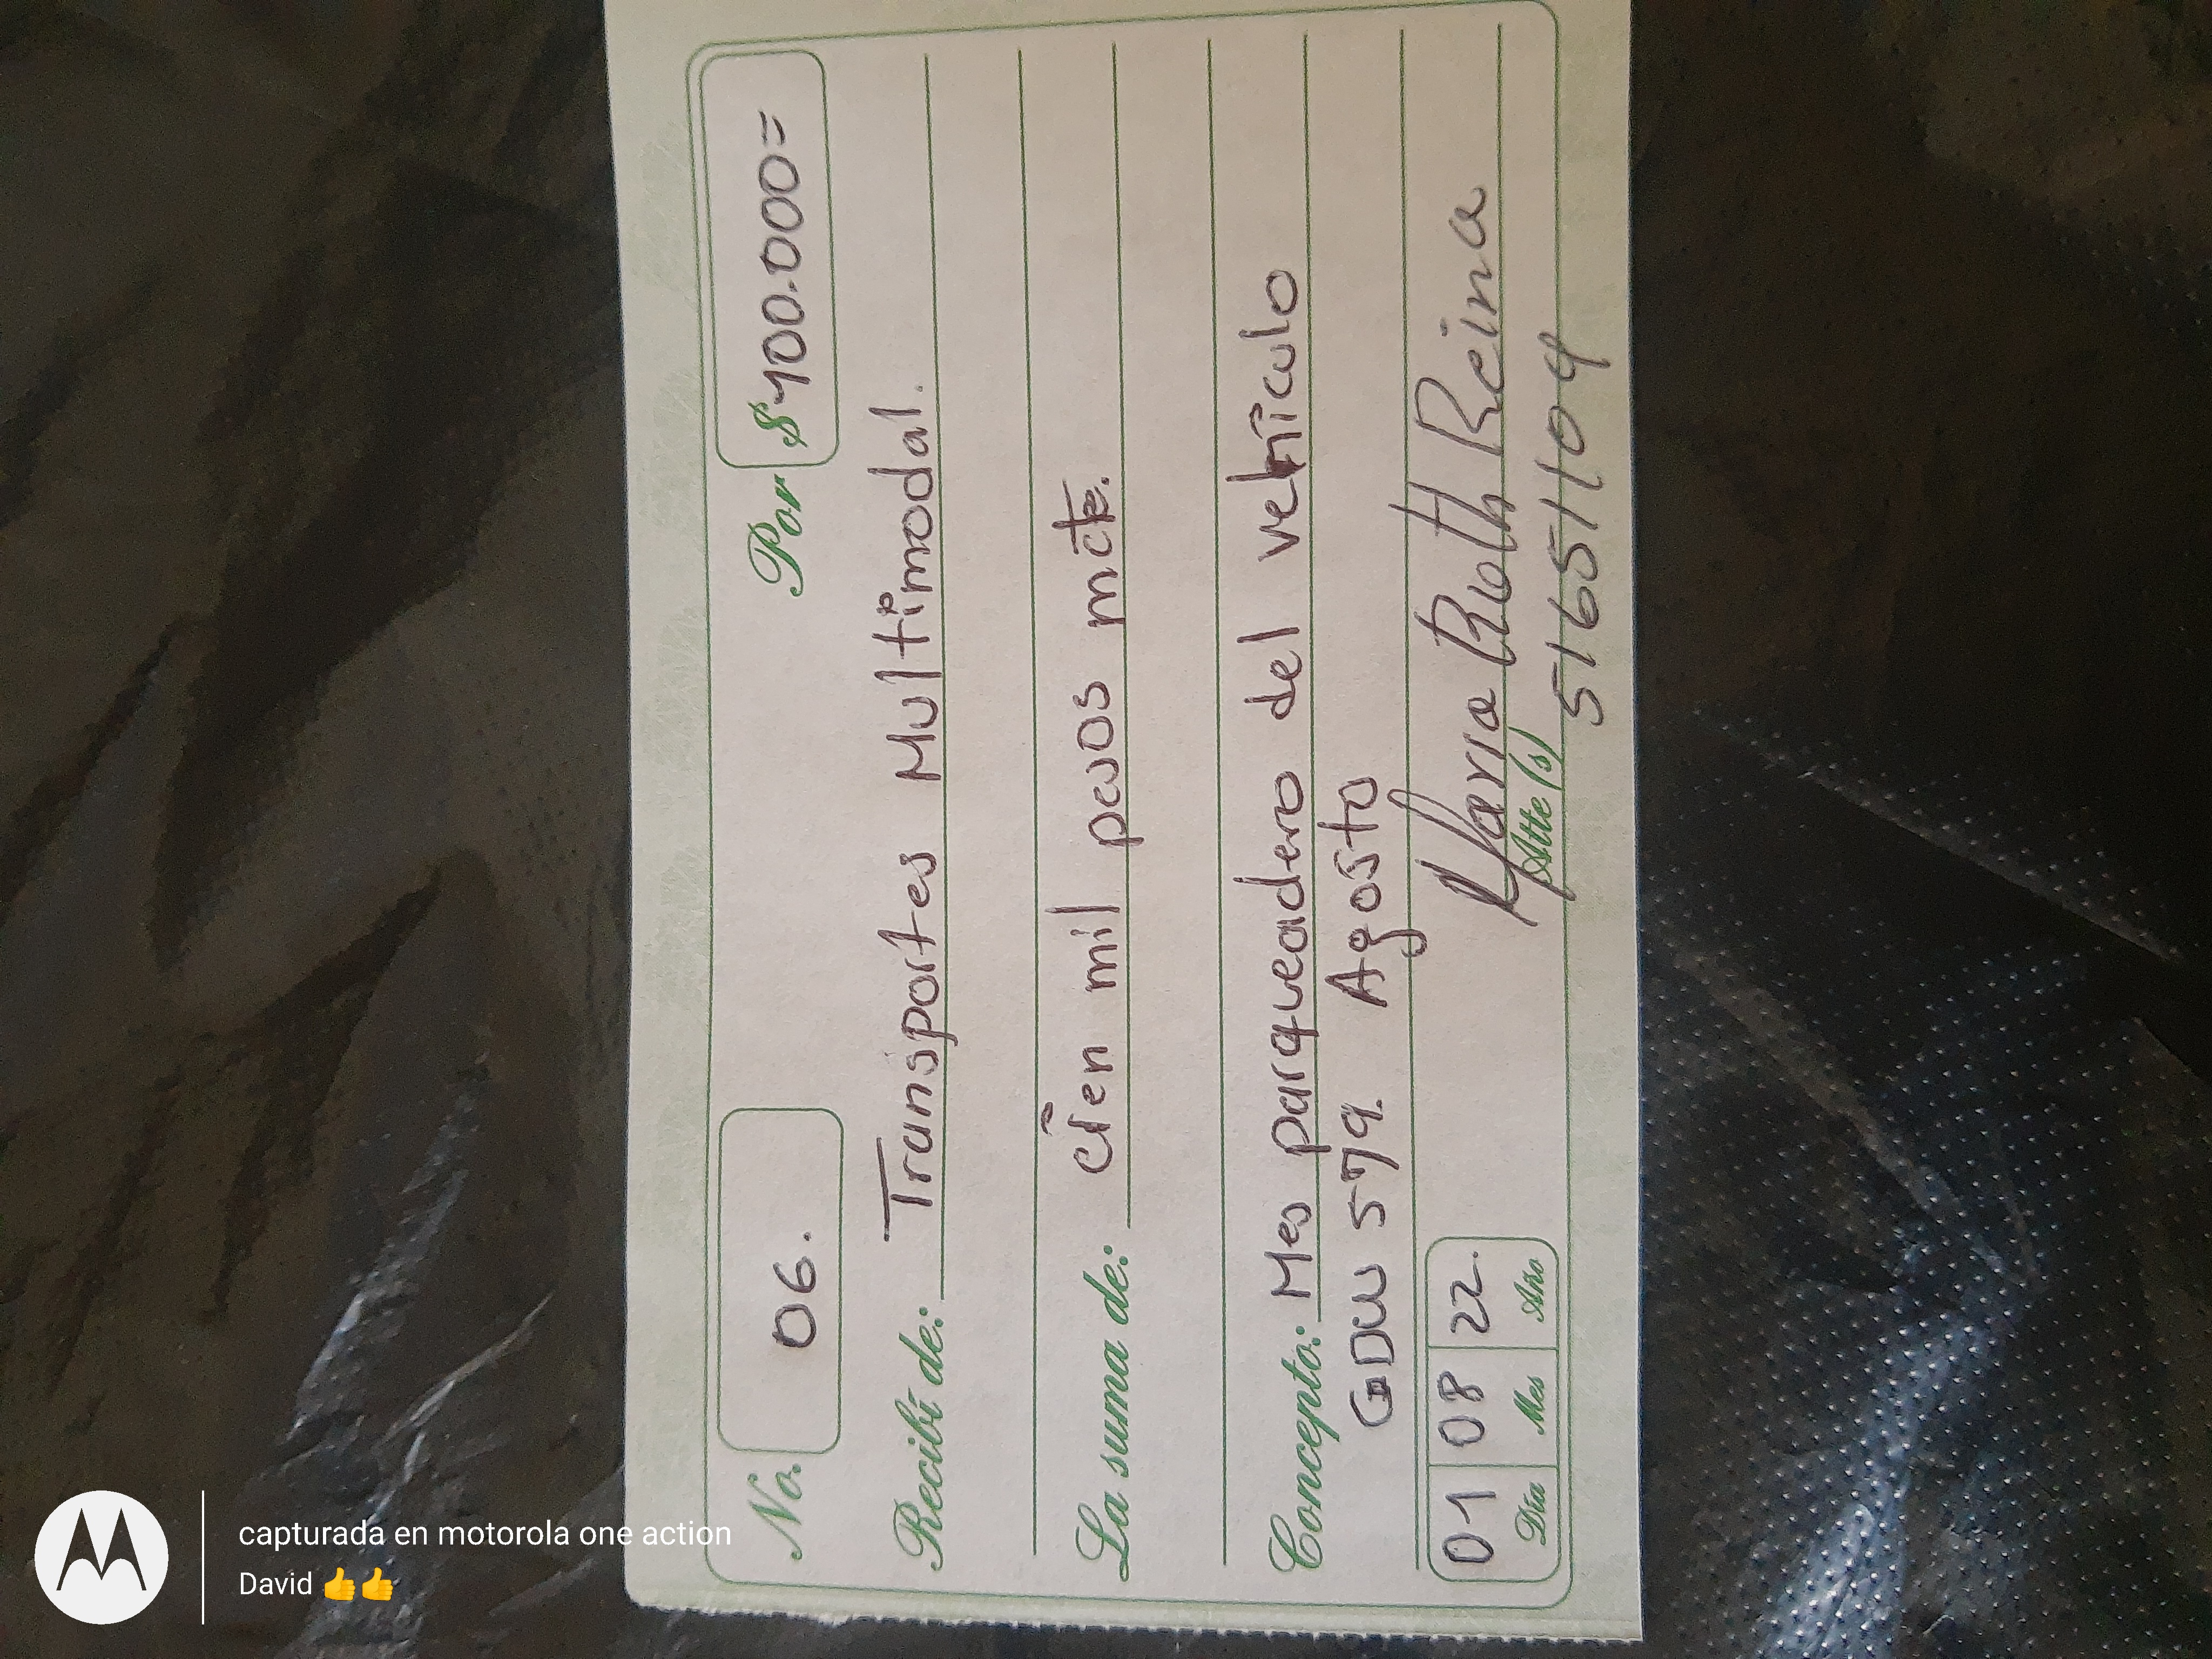 No. 06. Por $ 100.000=
Recibí de: Transportes Multimodal.
La suma de: Cien mil pesos mcte.
Concepto: Mes parqueadero del vehiculo
GDW 579. Agosto
Maria Ruth Reina
Atte (s)
51651104
01 08 22.
Día Mes Año
capturada en motorola one action
David 👍👍